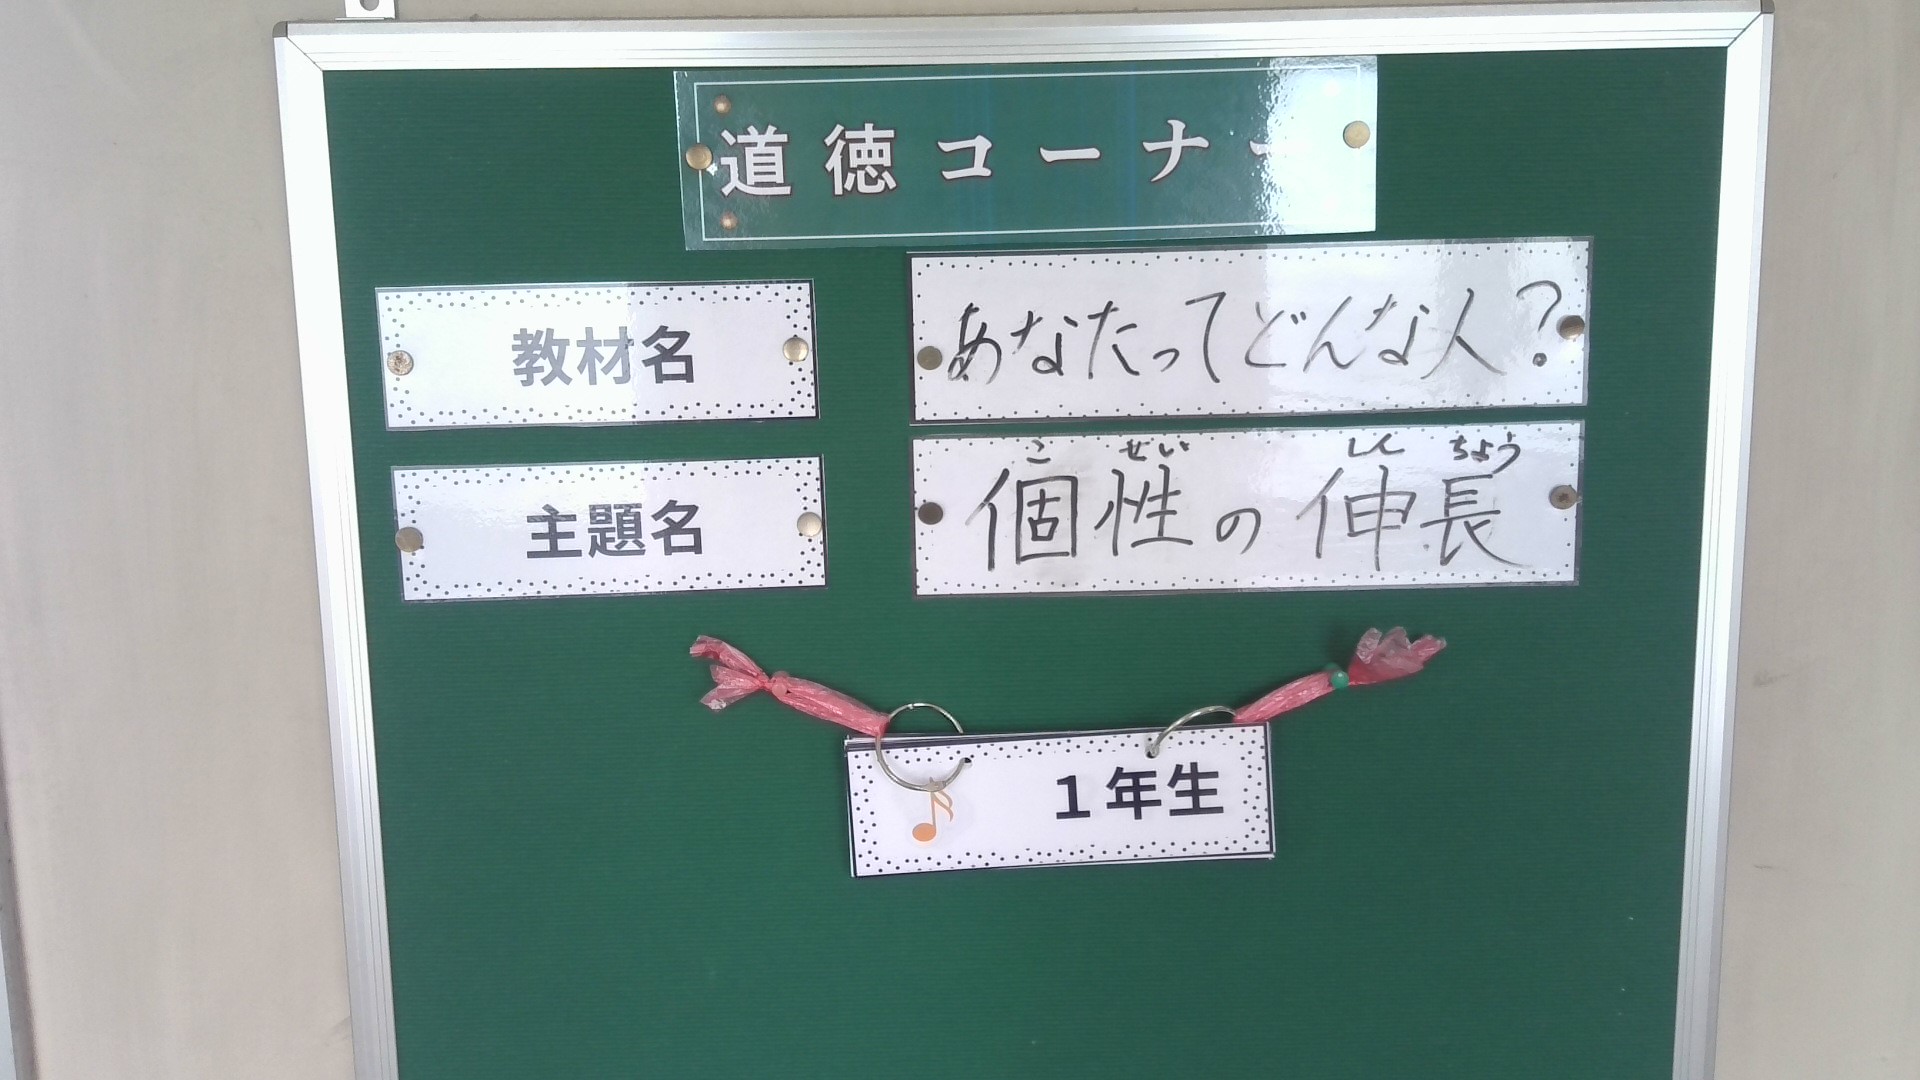 道徳コーナー
教材名
あなたってどんな人?
主題名
こ せい しん ちょう
個性の伸長
1年生